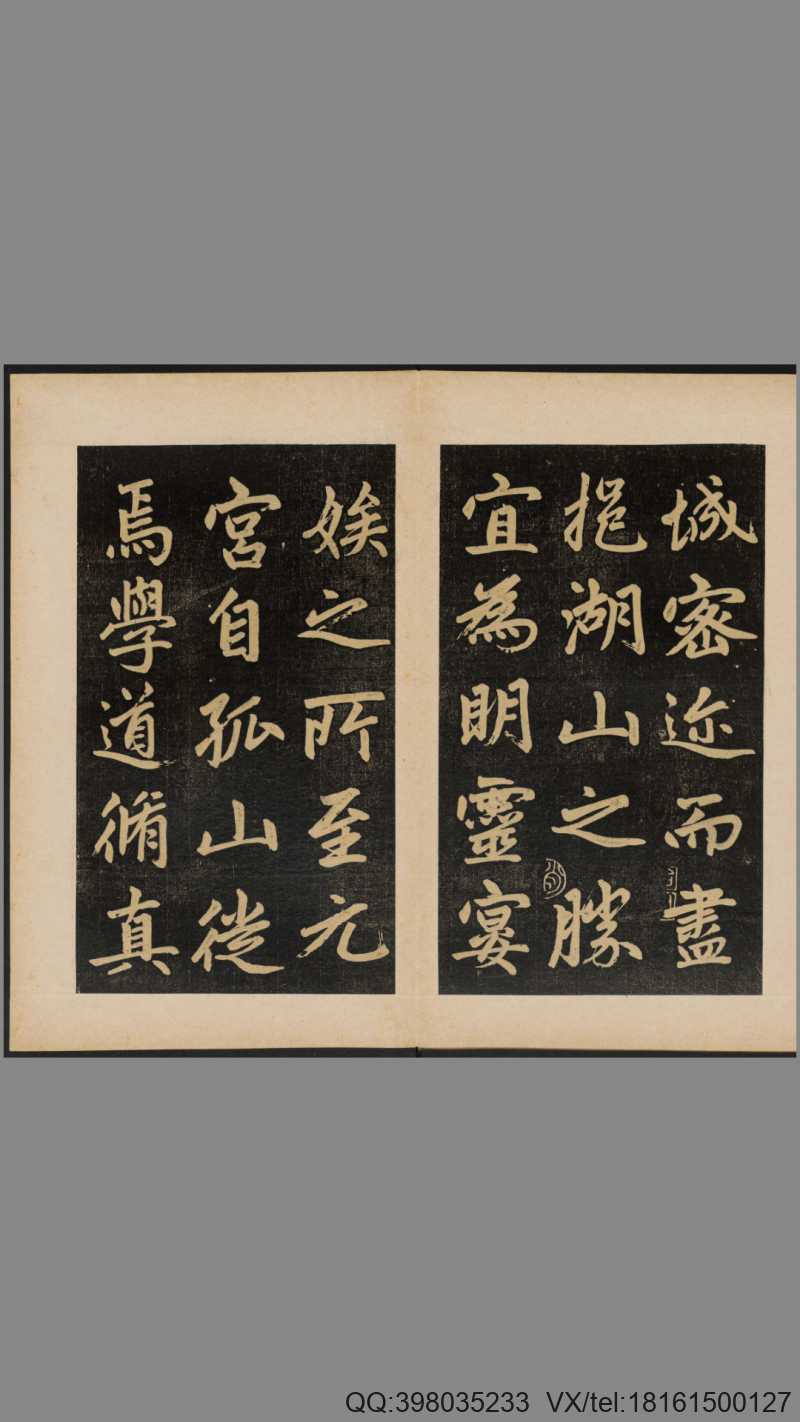 城密迩而盡
挹湖山之勝
宜為明靈宴
娭之所至元
宮自孤山徙
焉學道脩真
QQ:398035233 VX/tel:18161500127